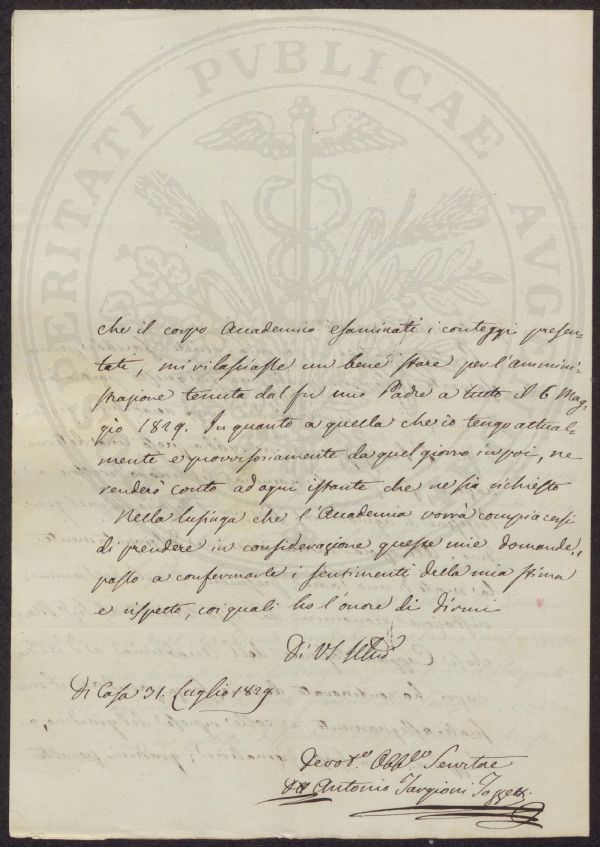 VERITATI PVBLICAE AVG
che il corpo Accademico esaminati i conteggi presen-
tati, mi rilasciasse un bene stare per l'ammini-
strazione tenuta dal fu mio Padre a tutto il 6 Mag-
gio 1829. In quanto a quella che io tengo attual-
mente e provvisoriamente da quel giorno in poi, ne
renderò conto ad ogni istante che ne sia richiesto
Nella lusinga che l'Accademia vorrà compiacersi
di prendere in considerazione queste mie domande,
passo a confermarle i sentimenti della mia stima
e rispetto, coi quali ho l'onore di dirmi
Di VS. Illma
Di Casa 31. Luglio 1829
Devo.mo Obb.mo Servitore
Antonio Targioni Tozzetti